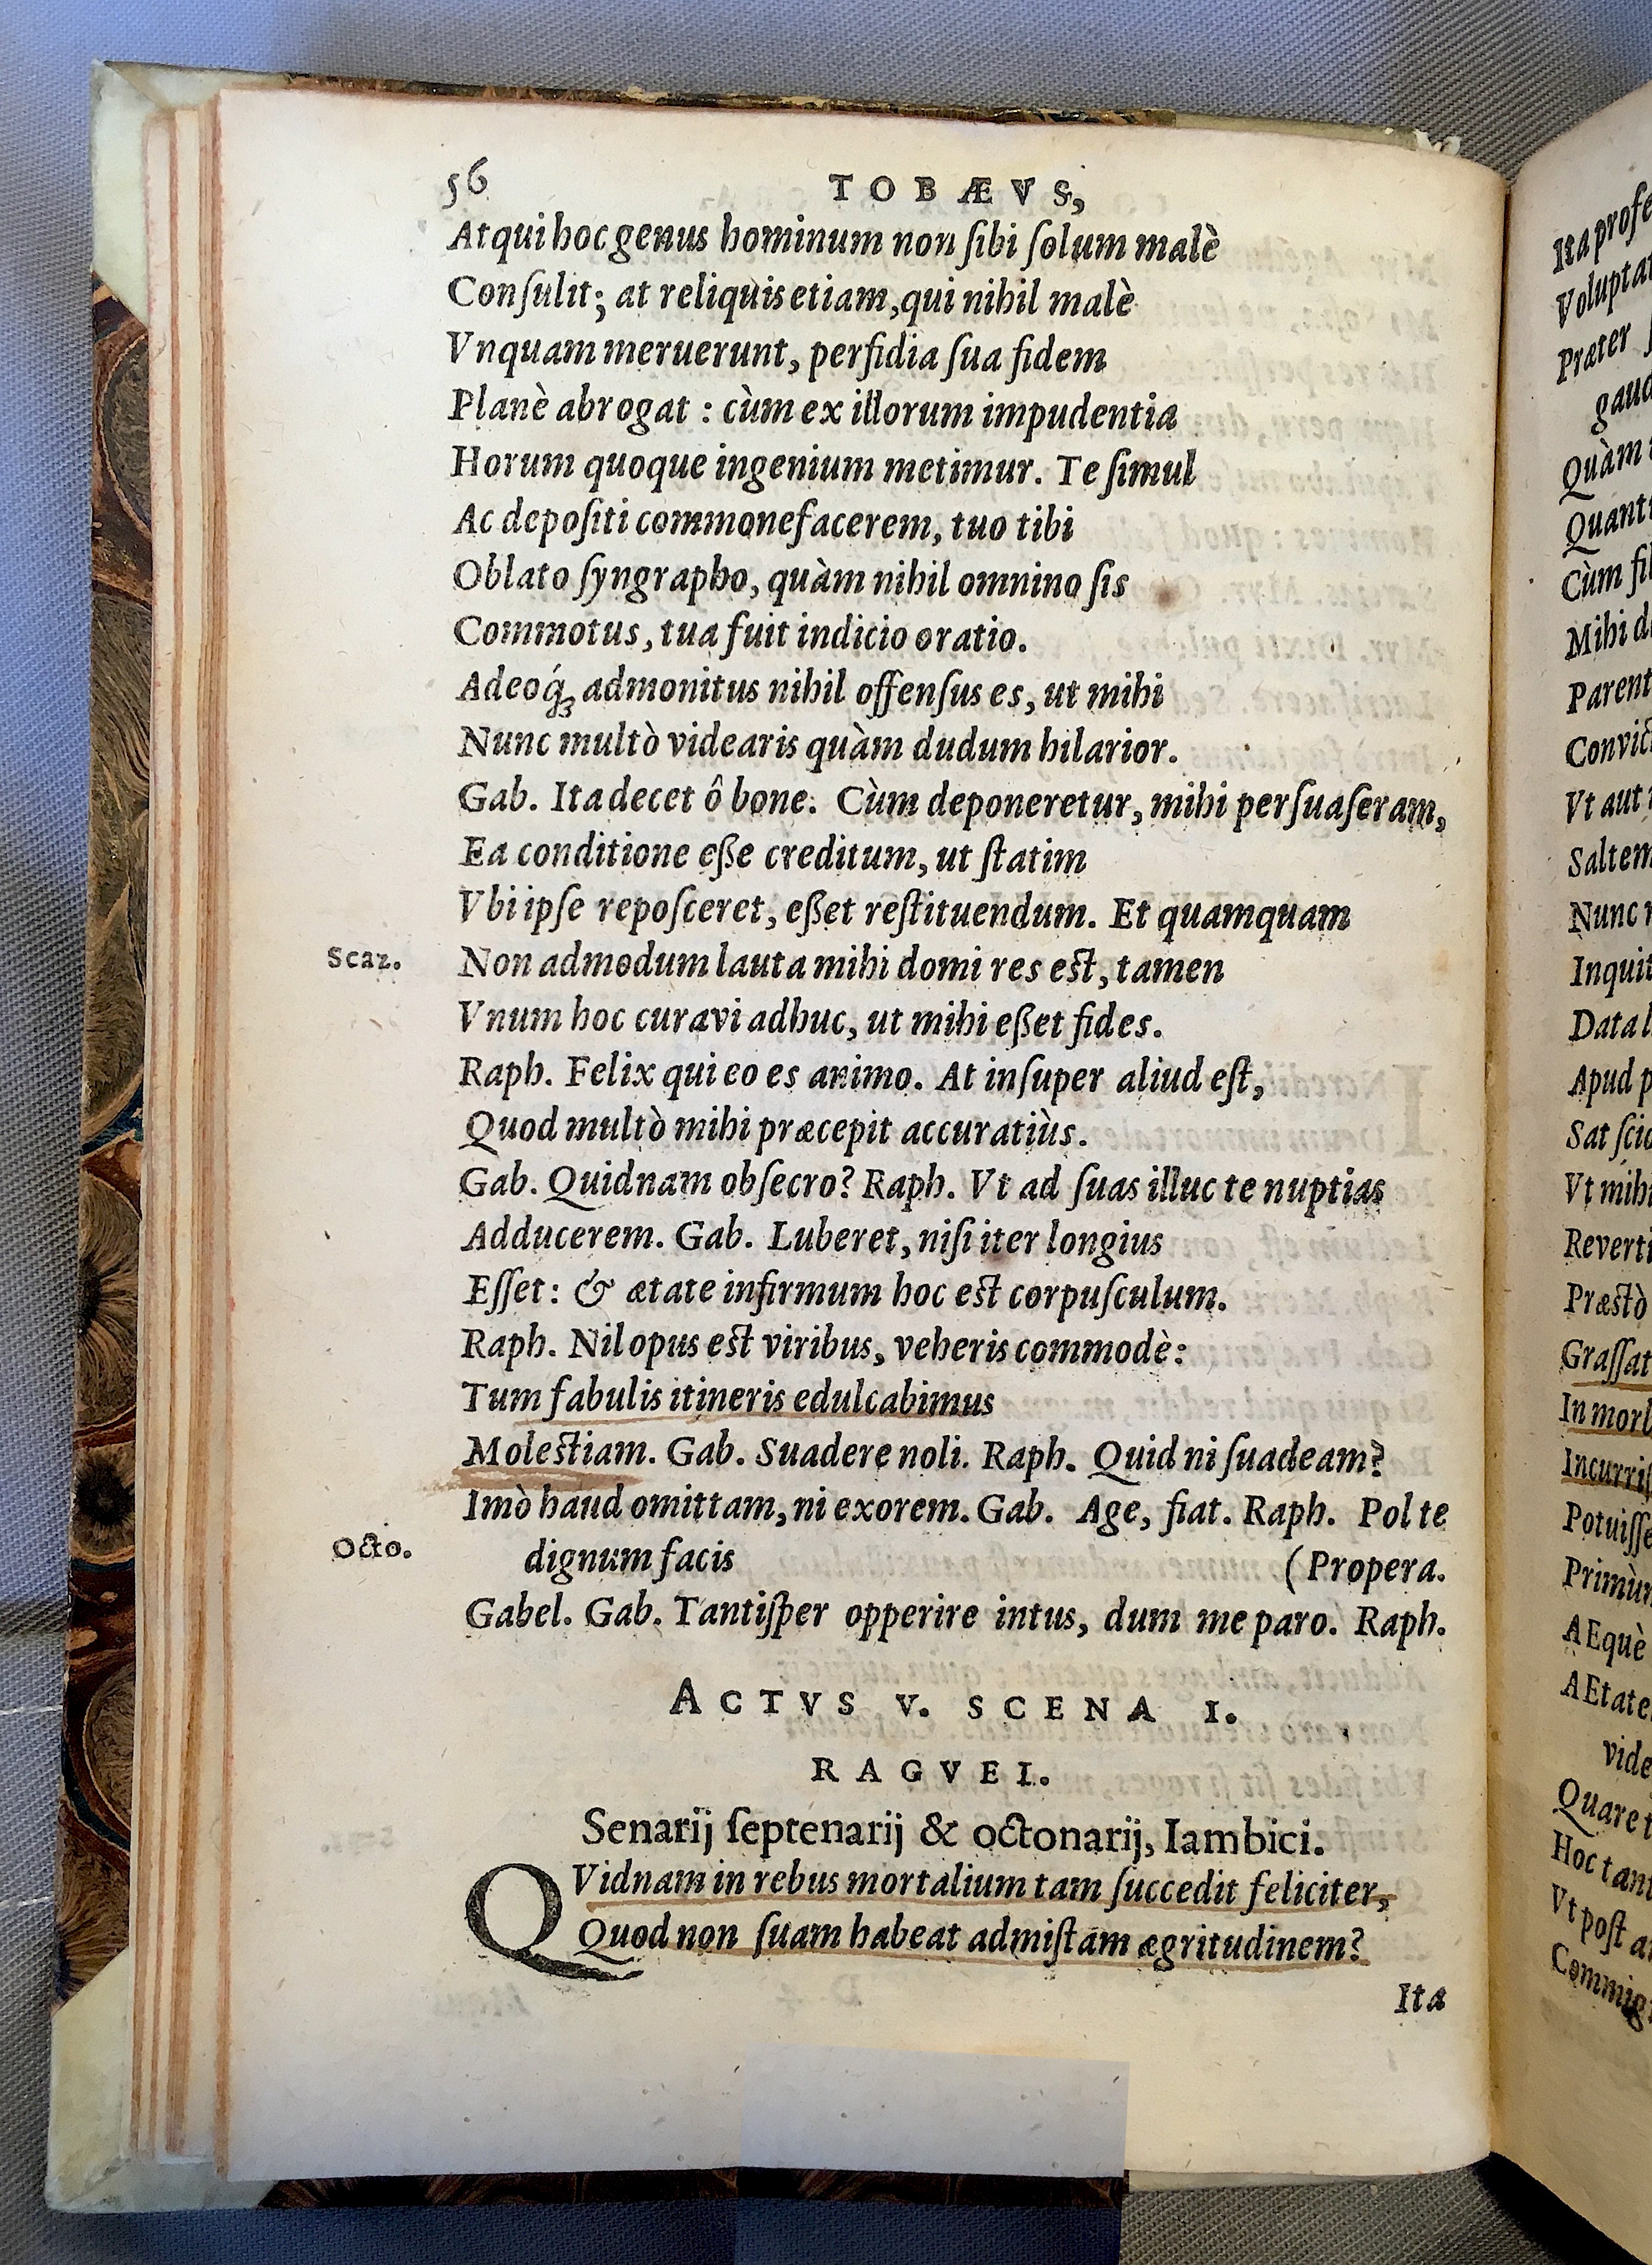 56 TOBÆVS,
Atqui hoc genus hominum non ſibi ſolum malè
Conſulit; at reliquis etiam, qui nihil malè
Vnquam meruerunt, perfidia ſua fidem
Planè abrogat : cùm ex illorum impudentia
Horum quoque ingenium metimur. Te ſimul
Ac depoſiti commonefacerem, tuo tibi
Oblato ſyngrapho, quàm nihil omnino ſis
Commotus, tua fuit indicio oratio.
Adeoq́ꝫ admonitus nihil offenſus es, ut mihi
Nunc multò videaris quàm dudum hilarior.
Gab. Ita decet ô bone. Cùm deponeretur, mihi perſuaſeram,
Ea conditione eße creditum, ut ſtatim
Vbi ipſe repoſceret, eßet reſtituendum. Et quamquam
Scaz. Non admodum lauta mihi domi res est, tamen
Vnum hoc curavi adhuc, ut mihi eßet fides.
Raph. Felix qui eo es animo. At inſuper aliud eſt,
Quod multò mihi præcepit accuratiùs.
Gab. Quidnam obſecro? Raph. Vt ad ſuas illuc te nuptias
Adducerem. Gab. Luberet, niſi iter longius
Eſſet: & ætate infirmum hoc est corpuſculum.
Raph. Nil opus est viribus, veheris commodè:
Tum fabulis itineris edulcabimus
Molestiam. Gab. Suadere noli. Raph. Quid ni ſuadeam?
Imò haud omittam, ni exorem. Gab. Age, fiat. Raph. Pol te
Octo. dignum facis (Propera.
Gabel. Gab. Tantiſper opperire intus, dum me paro. Raph.
ACTVS V. SCENA I.
RAGVEI.
Senarij ſeptenarij & octonarij, Iambici.
QVidnam in rebus mortalium tam ſuccedit feliciter,
Quod non ſuam habeat admiſtam ægritudinem?
Ita
Ita
Præter
Quàm
Cùm
Mihi
Vt aut
Saltem
Nunc
Apud
Vt
Præstò
Incurriſ
AEquè
Hoc
Vt poſt